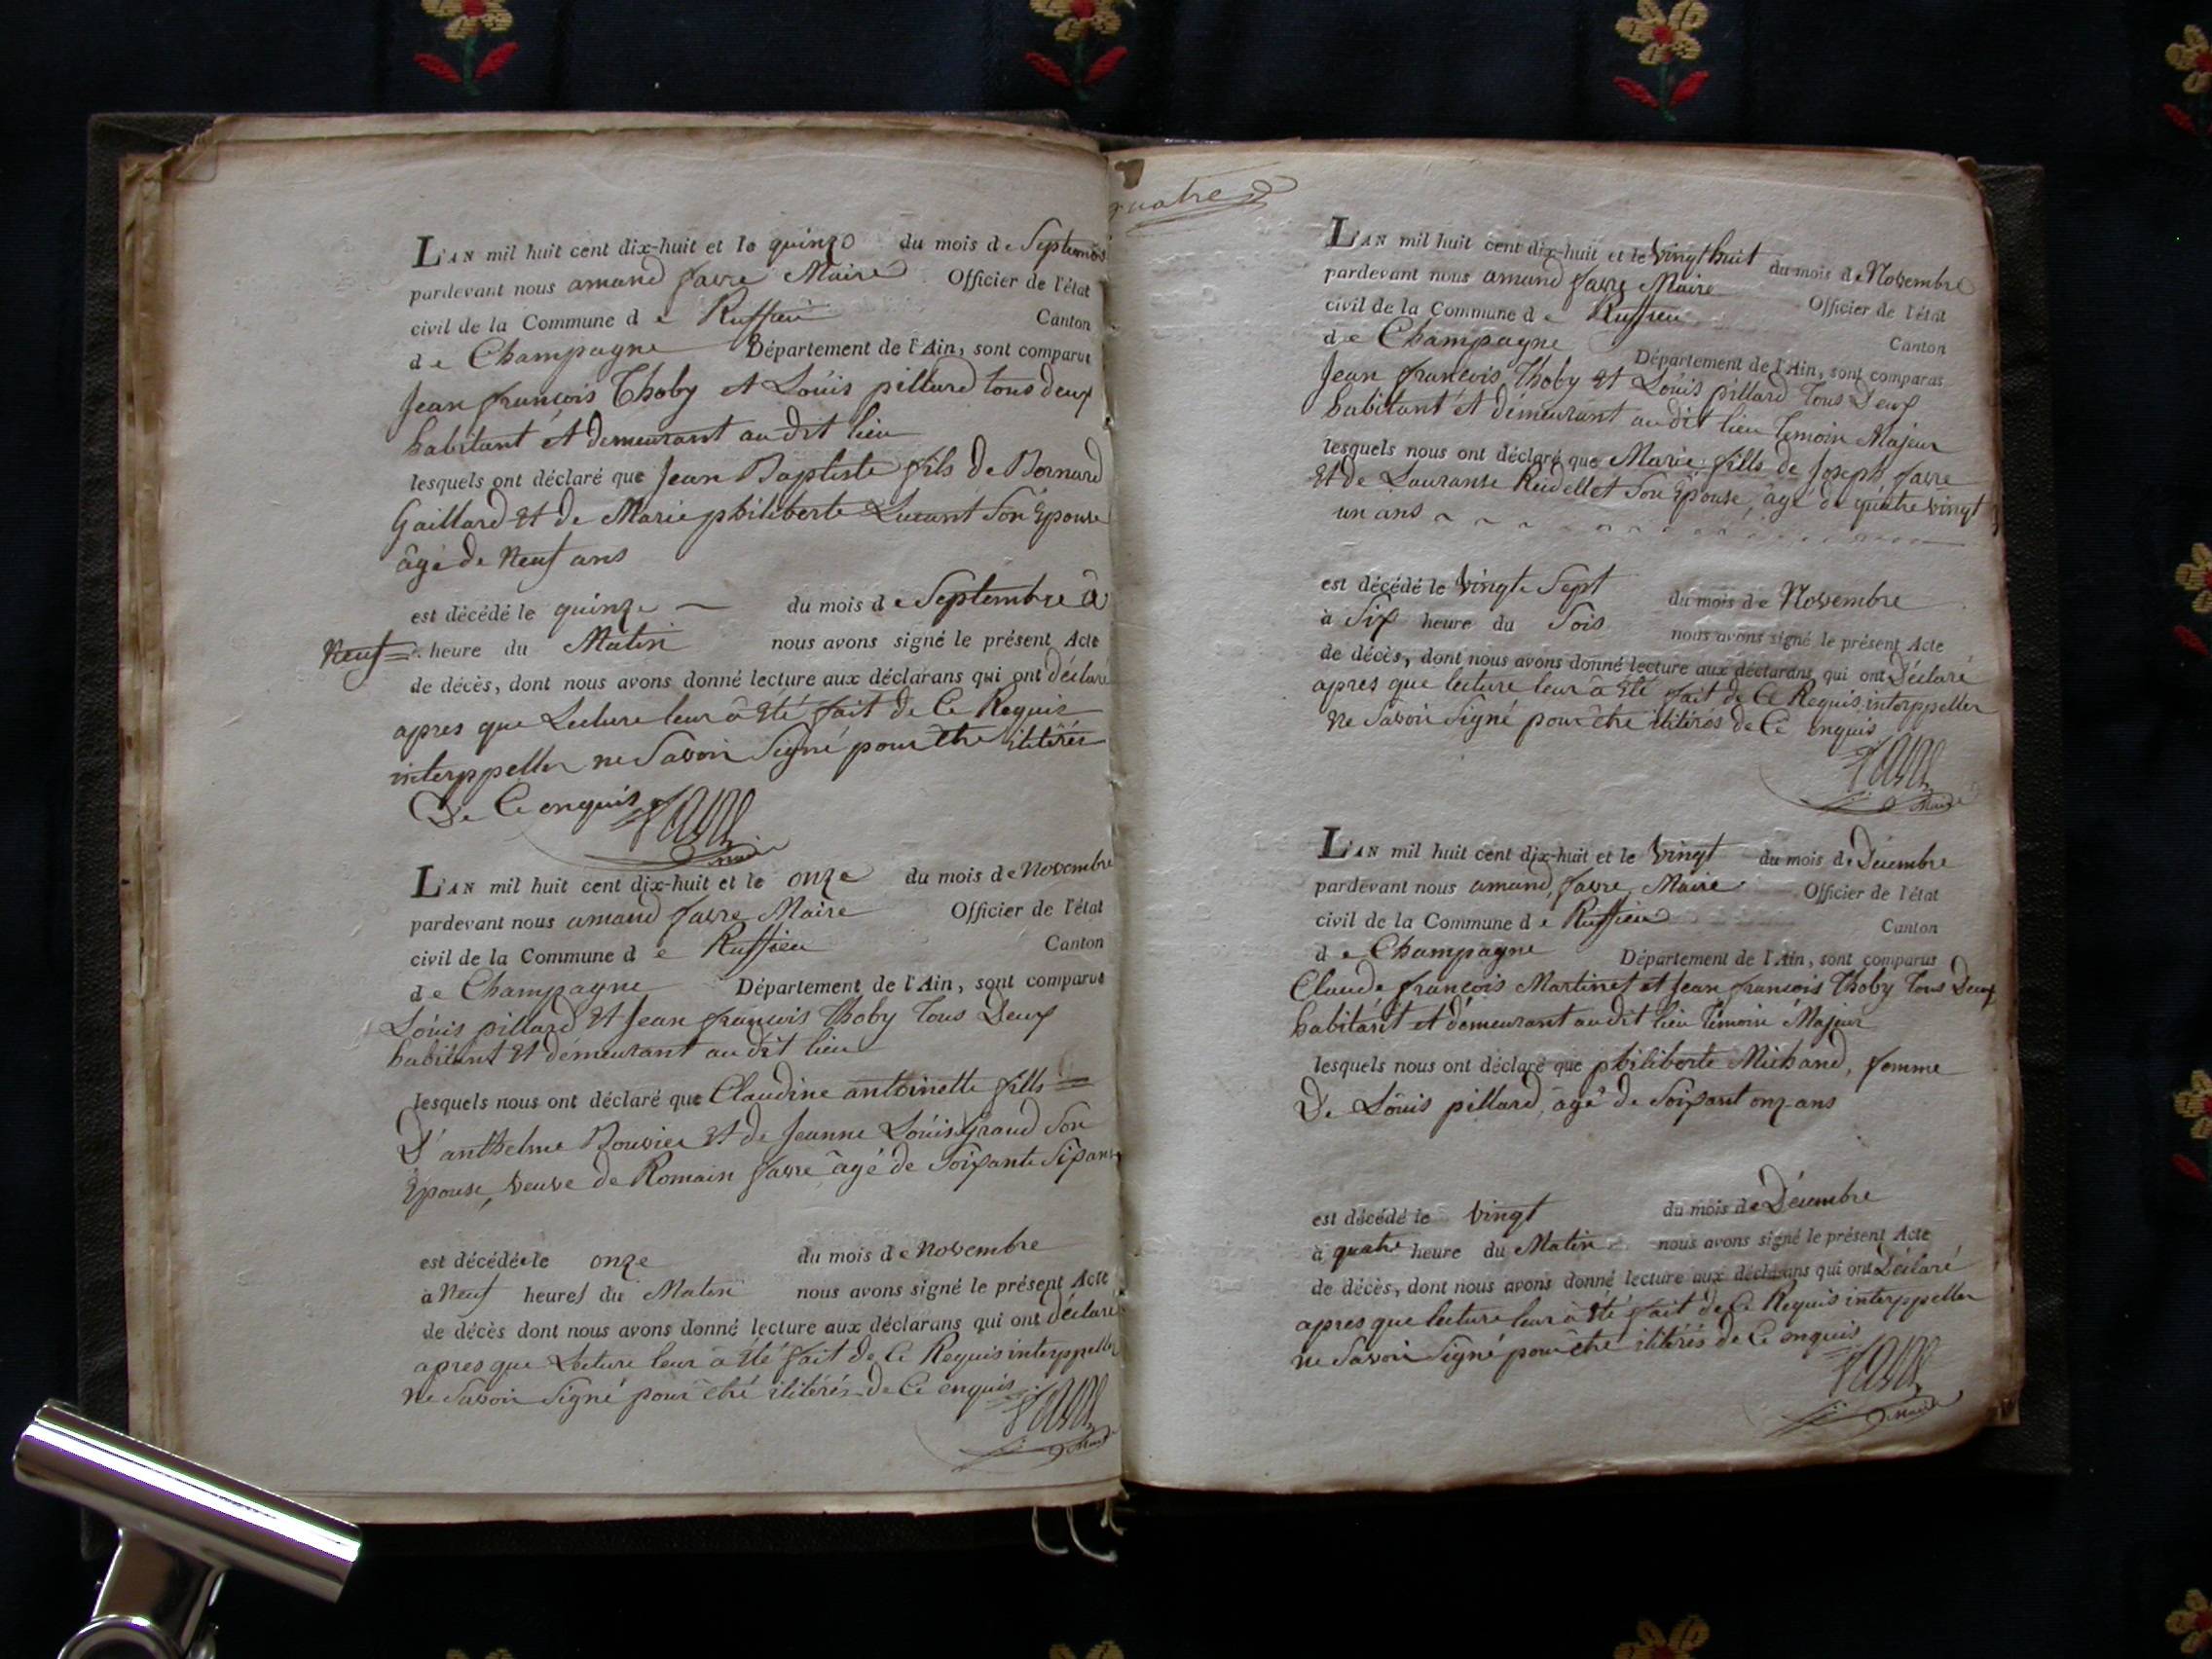 L'AN mil huit cent dix-huit et le quinze du mois de Septembre
pardevant nous amand favre Maire Officier de l'état
civil de la Commune de Ruffieu Canton
de Champagne Département de l'Ain, sont comparut
Jean françois Thoby et Loüis pillard tous deux
habitant et demeurant audit lieu
lesquels ont déclaré que Jean Baptiste fils de Bernard
Gaillard et de Marie philiberte Son Epouse
âgé de Neuf ans
est décédé le quinze du mois de Septembre à
Neuf heure du Matin nous avons signé le présent Acte
de décès, dont nous avons donné lecture aux déclarans qui ont déclaré
apres que Lecture leur à été fait de Ce Requis
interppeller ne Savoir Signé pour être ilitérés
De Ce enquis favre
maire
L'AN mil huit cent dix-huit et le onze du mois de Novembre
pardevant nous amand favre Maire Officier de l'état
civil de la Commune de Ruffieu Canton
de Champagne Département de l'Ain, sont comparus
Loüis pillard et Jean françois Thoby Tous Deux
habitant et démeurant audit lieu
lesquels nous ont déclaré que Claudine antoinette fille
D'anthelme Bouvier et de Jeanne Loüise Graud Son
Epouse, veuve de Romain favre âgé de Soixante Six ans
est décédée le onze du mois de Novembre
à Neuf heures du Matin nous avons signé le présent Acte
de décès dont nous avons donné lecture aux déclarans qui ont déclaré
apres que Lecture leur à été fait de Ce Requis interppeller
Ne Savoir Signé pour être ilitérés de Ce enquis favre
Maire
quatre
L'AN mil huit cent dix-huit et le Vingt huit du mois de Novembre
pardevant nous amand favre Maire Officier de l'état
civil de la Commune de Ruffieu Canton
de Champagne Département de l'Ain, sont comparus
Jean françois Thoby et Loüis pillard Tous Deux
habitant et démeurant audit lieu Temoin Majeur
lesquels nous ont déclaré que Marie fille de Joseph favre
et de Lauranse Reidellet Son Epouse, âgé de quatre vingt
un ans
est décédé le Vingte Sept du mois de Novembre
à Six heure du Soir nous avons signé le présent Acte
de décès, dont nous avons donné lecture aux déclarans qui ont Déclaré
apres que lecture leur à été fait de Ce Requis interppeller
Ne Savoir Signé pour être ilitérés de Ce enquis
favre
Maire
L'AN mil huit cent dix-huit et le Vingt du mois de Décembre
pardevant nous amand favre Maire Officier de l'état
civil de la Commune de Ruffieu Canton
de Champagne Département de l'Ain, sont comparus
Claude françois Martinet et Jean francois Thoby Tous Deux
habitant et démeurant audit lieu Témoin Majeur
lesquels nous ont déclaré que philiberte Michaud, femme
De Loüis pillard, âgé de Soixant onz ans
est décédé le vingt du mois de Décembre
à quatre heure du Matin nous avons signé le présent Acte
de décès, dont nous avons donné lecture aux déclarans qui ont Déclaré
apres que lecture leur à été fait de Ce Requis interppeller
ne Savoir Signé pour être ilitérés de Ce enquis
favre
maire